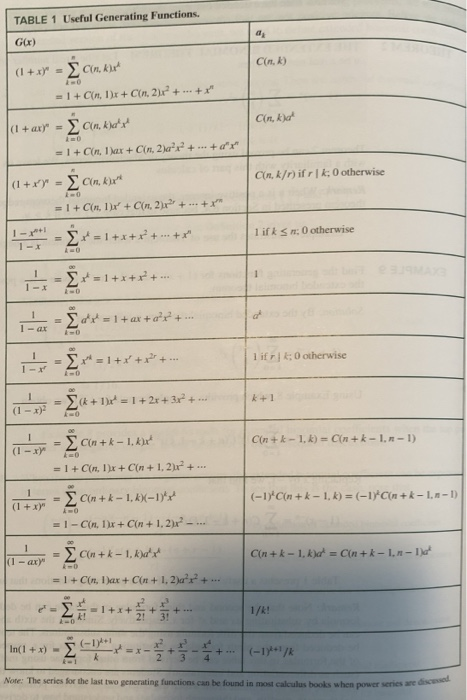 TABLE 1 Useful Generating Functions.
G(x) aₖ
(1 + x)ⁿ = ∑ₖ₌₀ⁿ C(n, k)xᵏ C(n, k)
= 1 + C(n, 1)x + C(n, 2)x² + ⋯ + xⁿ
(1 + ax)ⁿ = ∑ₖ₌₀ⁿ C(n, k)aᵏxᵏ C(n, k)aᵏ
= 1 + C(n, 1)ax + C(n, 2)a²x² + ⋯ + aⁿxⁿ
(1 + xʳ)ⁿ = ∑ₖ₌₀ⁿ C(n, k)xʳᵏ C(n, k/r) if r | k; 0 otherwise
= 1 + C(n, 1)xʳ + C(n, 2)x²ʳ + ⋯ + xʳⁿ
(1 − xⁿ⁺¹)/(1 − x) = ∑ₖ₌₀ⁿ xᵏ = 1 + x + x² + ⋯ + xⁿ 1 if k ≤ n; 0 otherwise
1/(1 − x) = ∑ₖ₌₀^∞ xᵏ = 1 + x + x² + ⋯ 1
1/(1 − ax) = ∑ₖ₌₀^∞ aᵏxᵏ = 1 + ax + a²x² + ⋯ aᵏ
1/(1 − xʳ) = ∑ₖ₌₀^∞ xʳᵏ = 1 + xʳ + x²ʳ + ⋯ 1 if r | k; 0 otherwise
1/(1 − x)² = ∑ₖ₌₀^∞ (k + 1)xᵏ = 1 + 2x + 3x² + ⋯ k + 1
1/(1 − x)ⁿ = ∑ₖ₌₀^∞ C(n + k − 1, k)xᵏ C(n + k − 1, k) = C(n + k − 1, n − 1)
= 1 + C(n, 1)x + C(n + 1, 2)x² + ⋯
1/(1 + x)ⁿ = ∑ₖ₌₀^∞ C(n + k − 1, k)(−1)ᵏxᵏ (−1)ᵏC(n + k − 1, k) = (−1)ᵏC(n + k − 1, n − 1)
= 1 − C(n, 1)x + C(n + 1, 2)x² − ⋯
1/(1 − ax)ⁿ = ∑ₖ₌₀^∞ C(n + k − 1, k)aᵏxᵏ C(n + k − 1, k)aᵏ = C(n + k − 1, n − 1)aᵏ
= 1 + C(n, 1)ax + C(n + 1, 2)a²x² + ⋯
eˣ = ∑ₖ₌₀^∞ xᵏ/k! = 1 + x + x²/2! + x³/3! + ⋯ 1/k!
ln(1 + x) = ∑ₖ₌₁^∞ (−1)ᵏ⁺¹/k xᵏ = x − x²/2 + x³/3 − x⁴/4 + ⋯ (−1)ᵏ⁺¹/k
Note: The series for the last two generating functions can be found in most calculus books when power series are discussed.